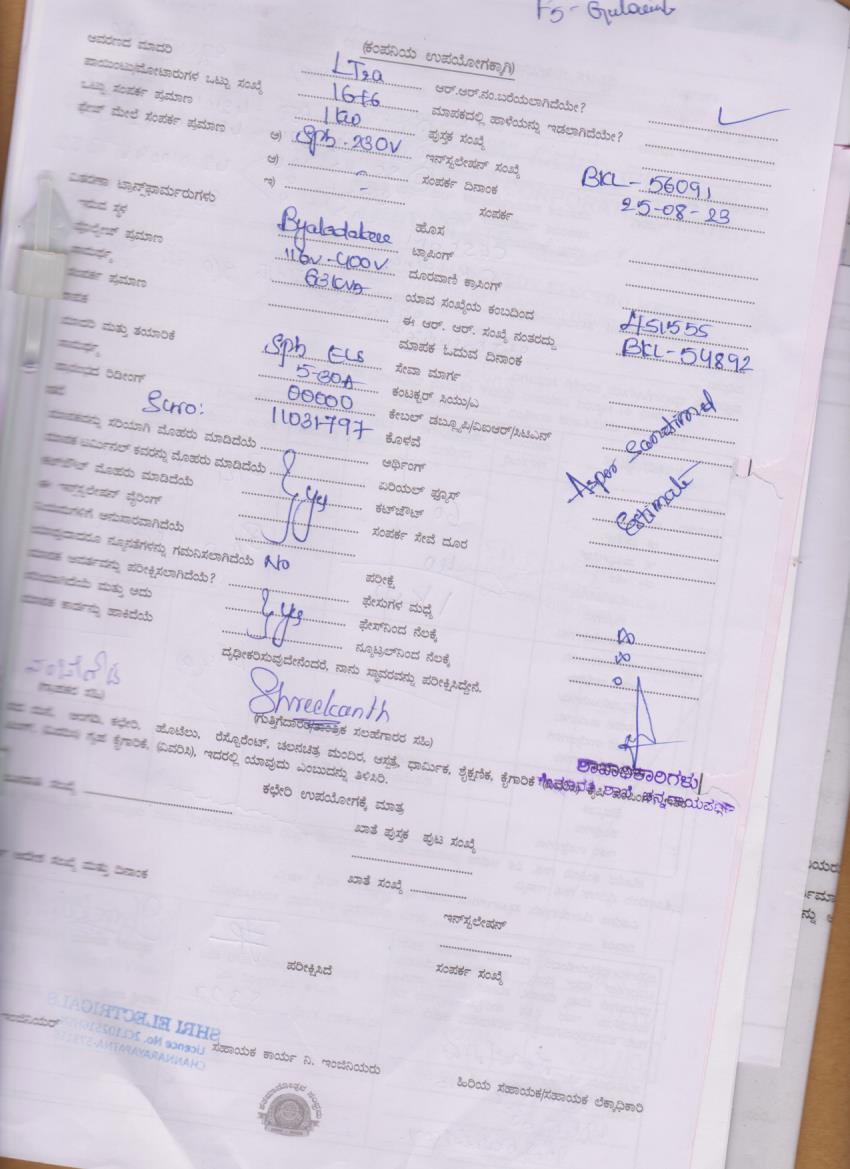 F5 - Gulaamb
(ಕಂಪನಿಯ ಉಪಯೋಗಕ್ಕಾಗಿ)
ಆವರಣದ ಮಾದರಿ LT2a ಆರ್.ಆರ್.ನಂ.ಬರೆಯಲಾಗಿದೆಯೇ?
ಪಾಯಿಂಟು/ಮೋಟಾರುಗಳ ಒಟ್ಟು ಸಂಖ್ಯೆ 16+6 ಮಾಪಕದಲ್ಲಿ ಹಾಳೆಯನ್ನು ಇಡಲಾಗಿದೆಯೇ?
ಒಟ್ಟು ಸಂಪರ್ಕ ಪ್ರಮಾಣ 1KW ಪುಸ್ತಕ ಸಂಖ್ಯೆ
ಫೇಸ್ ಮೇಲೆ ಸಂಪರ್ಕ ಪ್ರಮಾಣ ಅ) Sph - 230V ಇನ್‌ಸ್ಟಲೇಷನ್ ಸಂಖ್ಯೆ BKL - 56091
ಆ) - ಸಂಪರ್ಕ ದಿನಾಂಕ 25-08-23
ಇ) - ಸಂಪರ್ಕ
ವಿತರಣಾ ಟ್ರಾನ್ಸ್‌ಫಾರ್ಮರುಗಳು ಹೊಸ
ಇರುವ ಸ್ಥಳ Byaladakere ಟ್ಯಾಪಿಂಗ್
ವೋಲ್ಟೇಜ್ ಪ್ರಮಾಣ 11KV - 400V ದೂರವಾಣಿ ಕ್ರಾಸಿಂಗ್
ಸಾಮರ್ಥ್ಯ 63KVA ಯಾವ ಸಂಖ್ಯೆಯ ಕಂಬದಿಂದ 451555
ಸಂಪರ್ಕ ಪ್ರಮಾಣ ಈ ಆರ್. ಆರ್. ಸಂಖ್ಯೆ ನಂತರದ್ದು BKL - 54892
ಮಾಪಕ ಓದುವ ದಿನಾಂಕ
ಮಾದರಿ ಮತ್ತು ತಯಾರಿಕೆ Sph ELS ಸೇವಾ ಮಾರ್ಗ
ಸಾಮರ್ಥ್ಯ 5-30A ಕಂಟಕ್ಟರ್ ಸಿಯು/ಎ
ರಿಡಿಂಗ್ 00000 ಕೇಬಲ್ ಡಬ್ಲ್ಯೂಪಿ/ವಿಐಆರ್/ಸಿಟಿಎನ್
Slno: 11031797 ಕೊಳವೆ
ಮಾಪಕವನ್ನು ಸರಿಯಾಗಿ ಮೊಹರು ಮಾಡಿದೆಯೆ ಅರ್ಥಿಂಗ್
ಮಾಪಕ ಟರ್ಮಿನಲ್ ಕವರನ್ನು ಮೊಹರು ಮಾಡಿದೆಯೆ ಏರಿಯಲ್ ಫ್ಯೂಸ್ Asper Sanctined
ಕಟ್‌ಔಟ್ ಮೊಹರು ಮಾಡಿದೆಯೆ yes ಕಟ್‌ಔಟ್ Estimate
ಈ ಇನ್‌ಸ್ಟಲೇಷನ್ ವೈರಿಂಗ್ ಸಂಪರ್ಕ ಸೇವೆ ದೂರ
ನಿಯಮಗಳಿಗೆ ಅನುಸಾರವಾಗಿದೆಯೆ
ನ್ಯೂನತೆಗಳನ್ನು ಗಮನಿಸಲಾಗಿದೆಯೆ No ಪರೀಕ್ಷೆ
ಮಾಪಕ ಆವರ್ತವನ್ನು ಪರೀಕ್ಷಿಸಲಾಗಿದೆಯೆ? ಫೇಸುಗಳ ಮಧ್ಯೆ
ಸರಿಯಾಗಿದೆಯೆ ಮತ್ತು ಅದು yes ಫೇಸ್‌ನಿಂದ ನೆಲಕ್ಕೆ
ಮಾಪಕ ಕಾರ್ಡನ್ನು ಹಾಕಿದೆಯೆ ನ್ಯೂಟ್ರಲ್‌ನಿಂದ ನೆಲಕ್ಕೆ
ದೃಢೀಕರಿಸುವುದೇನೆಂದರೆ, ನಾನು ಸ್ಥಾವರವನ್ನು ಪರೀಕ್ಷಿಸಿದ್ದೇನೆ.
(ಗ್ರಾಹಕರ ಸಹಿ) Shreekanth
(ಗುತ್ತಿಗೆದಾರ/ತಾಂತ್ರಿಕ ಸಲಹೆಗಾರರ ಸಹಿ)
ಶಾಖಾಧಿಕಾರಿಗಳು
ಮನೆ, ಅಂಗಡಿ, ಕಛೇರಿ, ಹೊಟೆಲು, ರೆಸ್ಟೊರೆಂಟ್, ಚಲನಚಿತ್ರ ಮಂದಿರ, ಆಸ್ಪತ್ರೆ, ಧಾರ್ಮಿಕ, ಶೈಕ್ಷಣಿಕ, ಕೈಗಾರಿಕೆ
ಗೃಹ ಕೈಗಾರಿಕೆ, (ವಿವರಿಸಿ), ಇದರಲ್ಲಿ ಯಾವುದು ಎಂಬುದನ್ನು ತಿಳಿಸಿರಿ.
ಕಛೇರಿ ಉಪಯೋಗಕ್ಕೆ ಮಾತ್ರ
ಖಾತೆ ಪುಸ್ತಕ ಪುಟ ಸಂಖ್ಯೆ
ಆದೇಶ ಸಂಖ್ಯೆ ಮತ್ತು ದಿನಾಂಕ ಖಾತೆ ಸಂಖ್ಯೆ
ಇನ್‌ಸ್ಟಲೇಷನ್
ಪರೀಕ್ಷಿಸಿದೆ ಸಂಪರ್ಕ ಸಂಖ್ಯೆ
SHRI ELECTRICALS
ಇಂಜಿನಿಯರ್ ಸಹಾಯಕ ಕಾರ್ಯ ನಿ. ಇಂಜಿನಿಯರು
ಹಿರಿಯ ಸಹಾಯಕ/ಸಹಾಯಕ ಲೆಕ್ಕಾಧಿಕಾರಿ